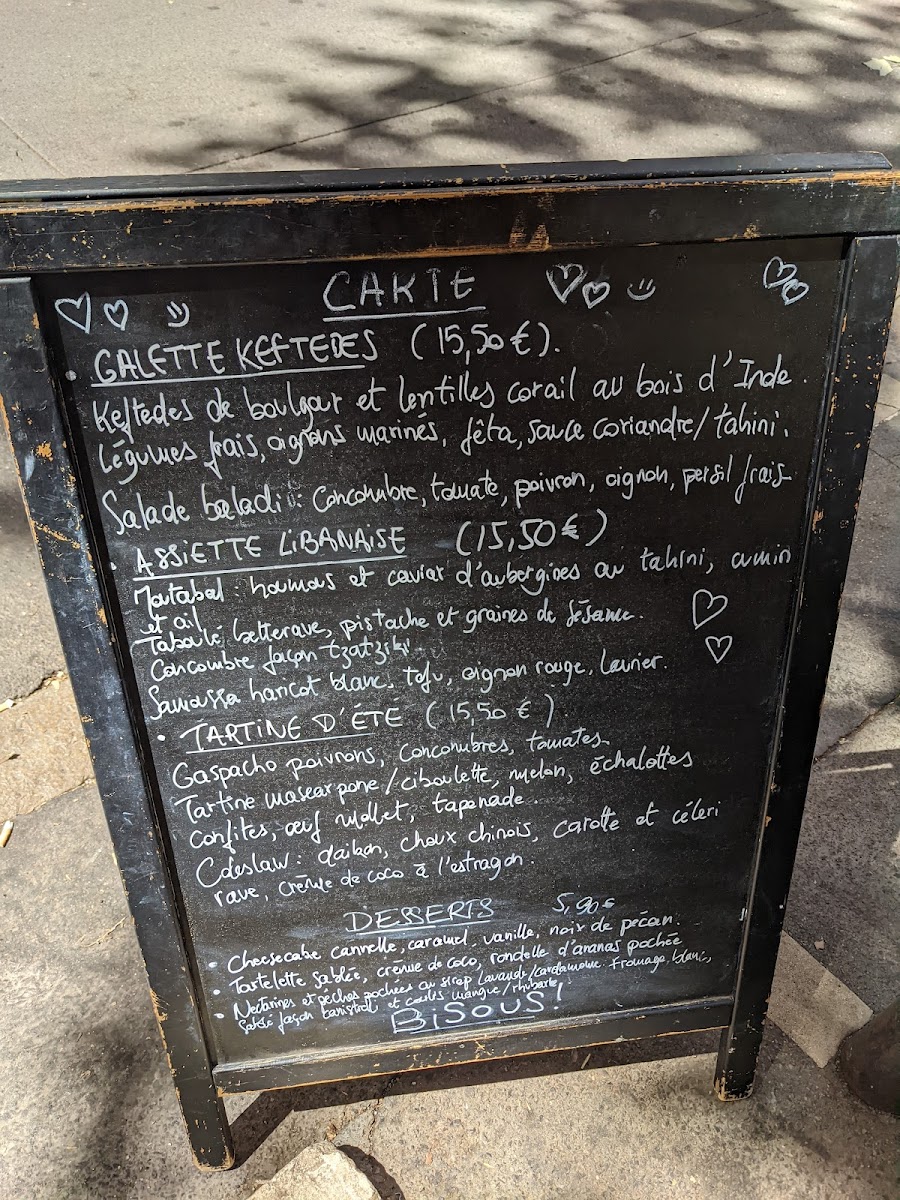 CARTE
GALETTE KEFTEDES (15,50 €).
Keftedes de boulgour et lentilles corail au bois d'Inde.
Légumes frais, oignons marinés, fêta, sauce coriandre/tahini.
Salade baladi : Concombre, tomate, poivron, oignon, persil frais
ASSIETTE LIBANAISE (15,50 €)
Moutabal : houmous et caviar d'aubergines au tahini, cumin
et ail
Taboulé betterave, pistache et graines de sésame.
Concombre façon tzatziki.
Samoussa haricot blanc, tofu, oignon rouge, laurier.
• TARTINE D'ÉTÉ (15,50 €).
Gaspacho poivrons, concombres, tomates
Tartine mascarpone/ciboulette, melon, échalottes
confites, œuf mollet, tapenade
Coleslaw : daikon, choux chinois, carotte et céleri
rave, crème de coco à l'estragon.
DESSERTS 5,90 €
• Cheesecake cannelle, caramel, vanille, noix de pécan.
• Tartelette sablée, crème de coco, rondelle d'ananas pochée
• Nectarines et pêches pochées au sirop lavande/cardamome. Fromage blanc,
sablé façon et coulis mangue/rhubarbe
BISOUS!